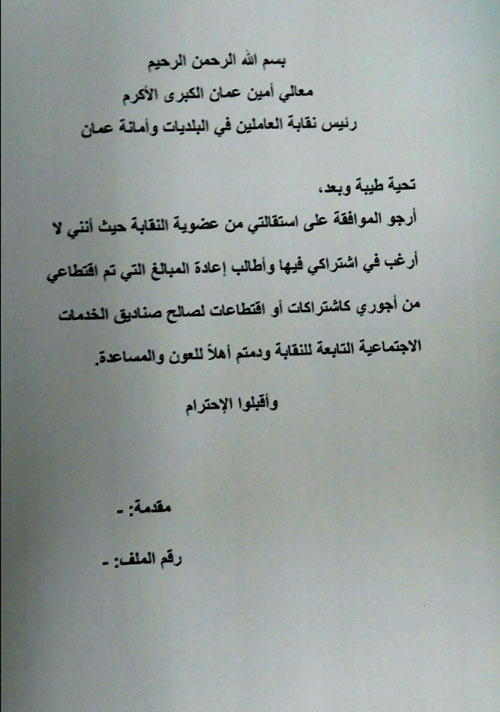 بسم الله الرحمن الرحيم
معالي أمين عمان الكبرى الأكرم
رئيس نقابة العاملين في البلديات وأمانة عمان
تحية طيبة وبعد،
أرجو الموافقة على استقالتي من عضوية النقابة حيث أنني لا
أرغب في اشتراكي فيها وأطالب إعادة المبالغ التي تم اقتطاعي
من أجوري كاشتراكات أو اقتطاعات لصالح صناديق الخدمات
الاجتماعية التابعة للنقابة ودمتم أهلاً للعون والمساعدة.
وأقبلوا الإحترام
مقدمة: -
رقم الملف: -